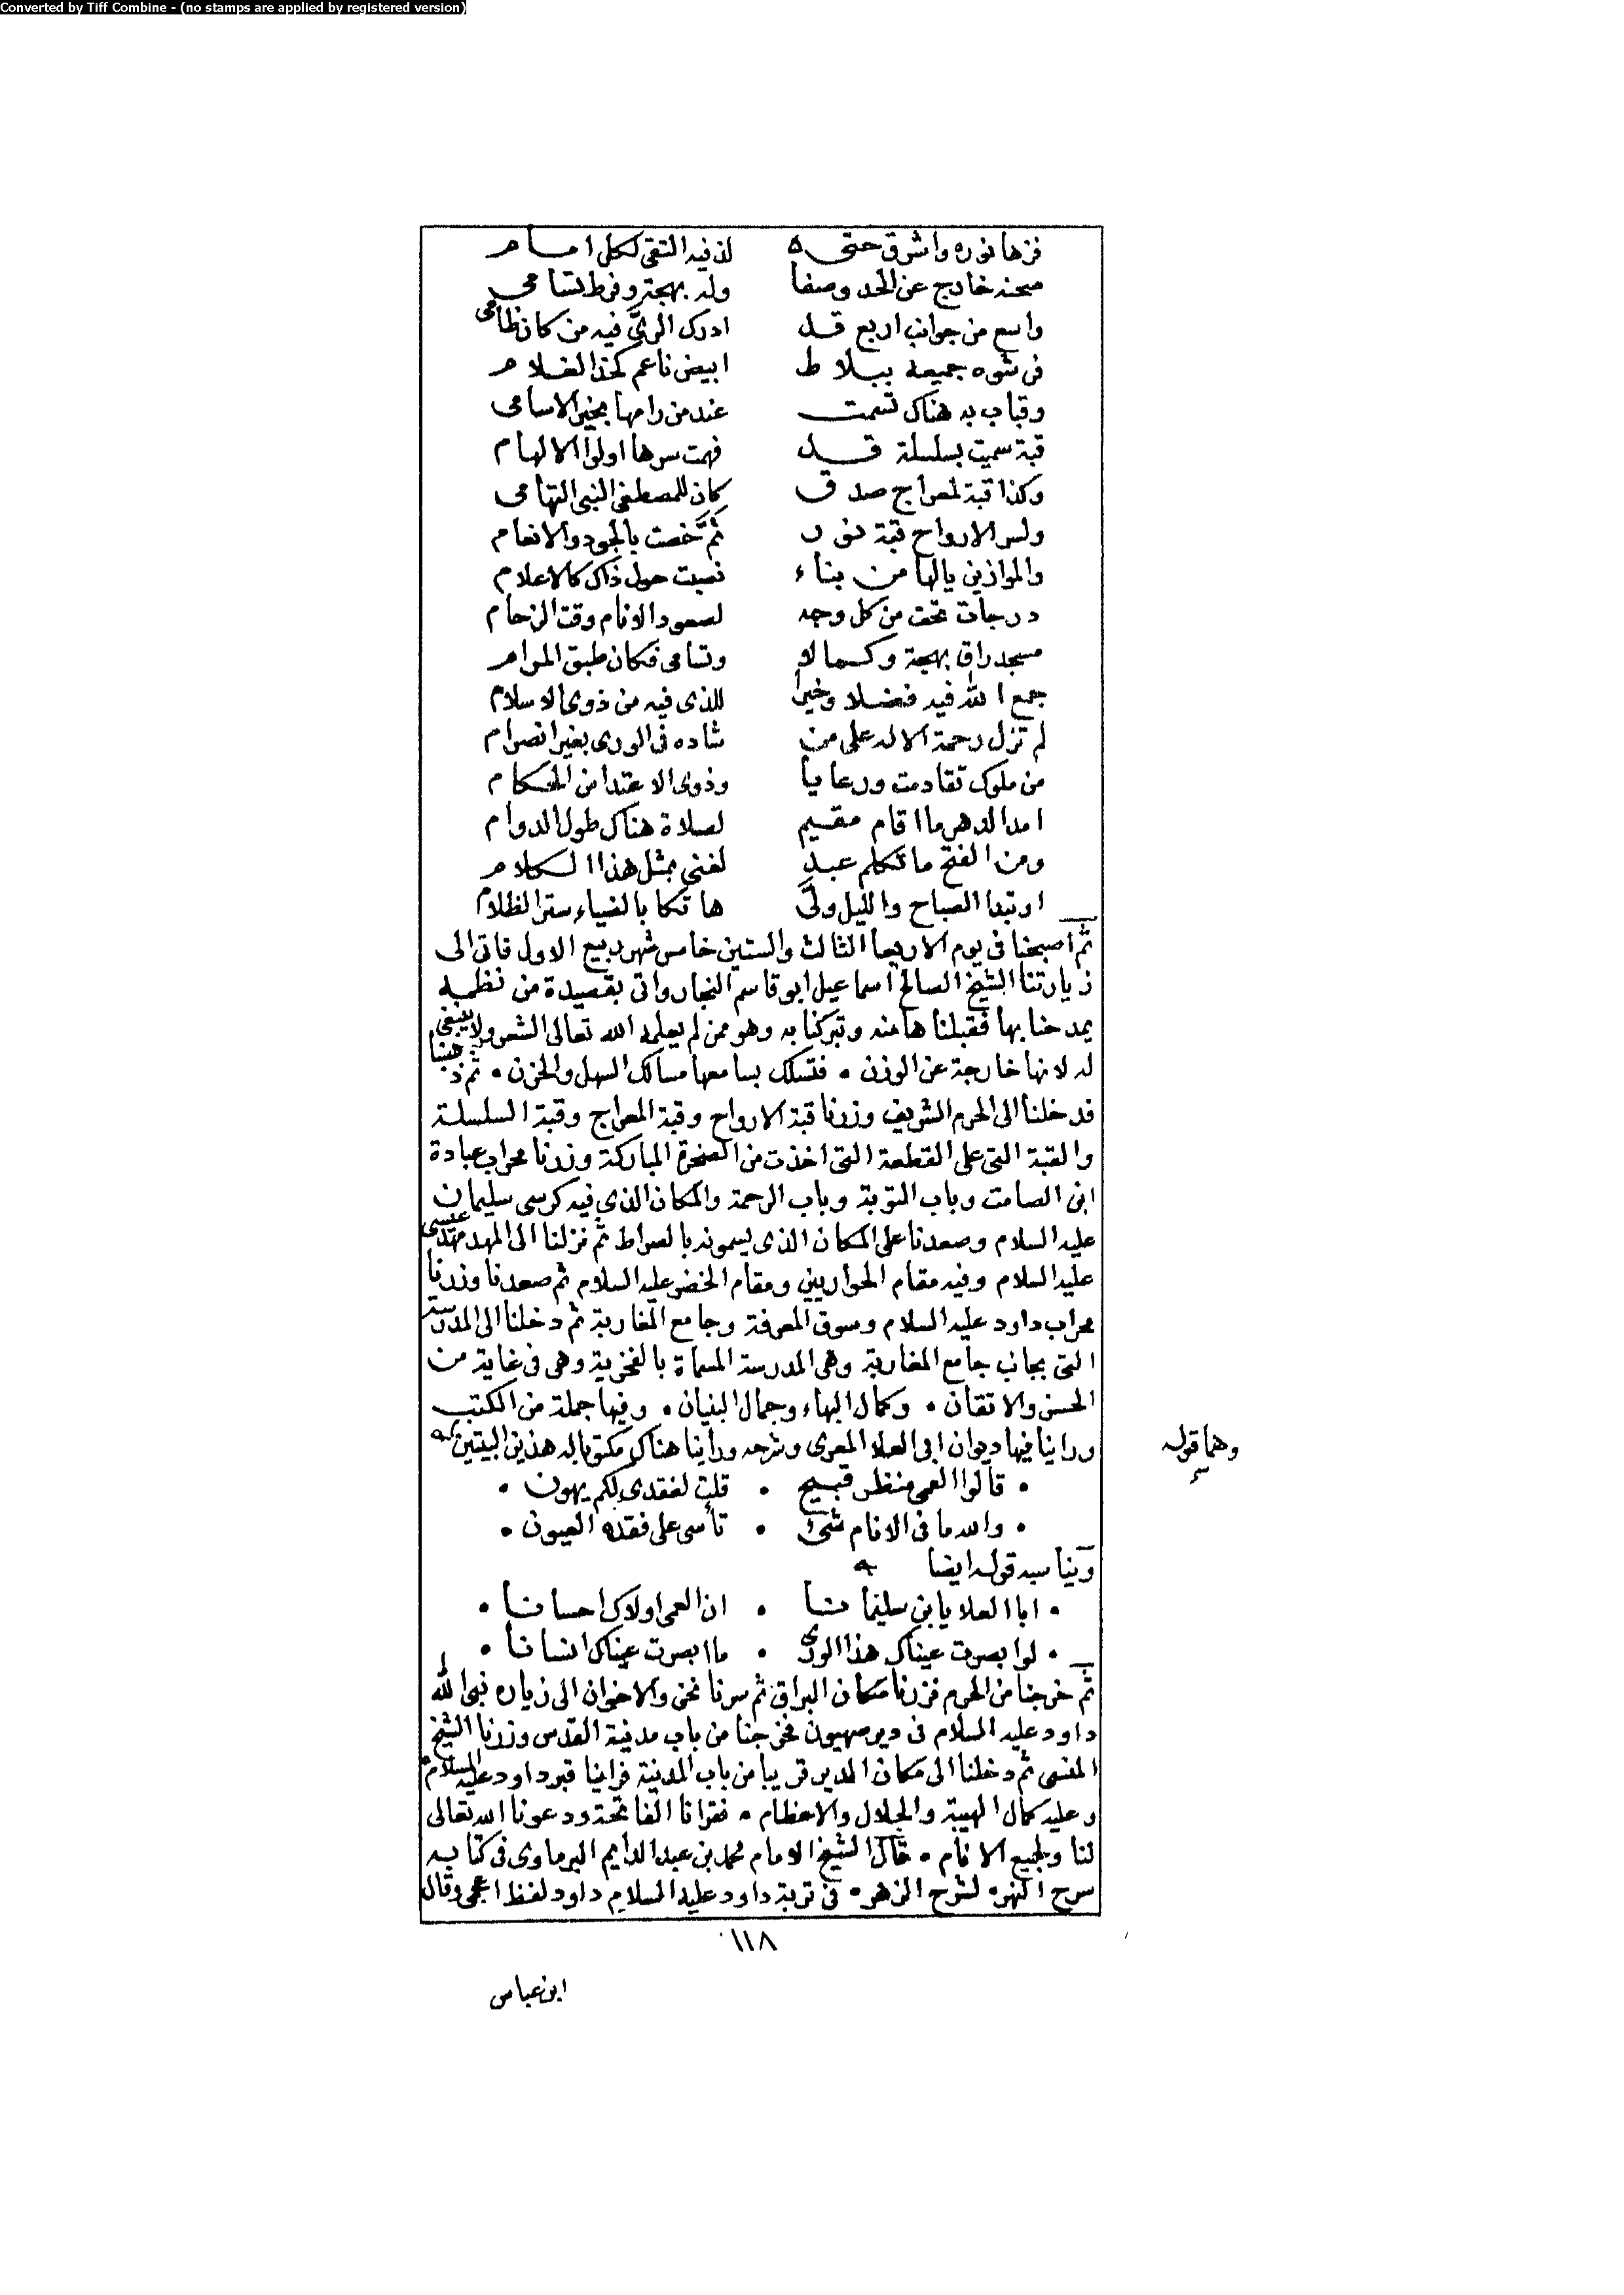 Converted by Tiff Combine - (no stamps are applied by registered version)
فزها نوره واشرق حتى لذ فيه التقى لكل امام
صحنه خارج عن الحد وصفا وله بهجة وفرط تسامى
واسع من جوانب اربع قد ادرك الريَّ فيه من كان ظامى
فرشوه جميعه ببلاط ابيض ناعم كخد الغلام
وقباب به هناك تسمت عند من رامها بخير الاسامى
قبة سميت بسلسلة قد فهمت سرها اولوا الالهام
وكذا قبة لمعراج صدق كان للمصطفى النبى التهامى
ولسر الارواح قبة نور ثَمَّ خصت بالجود والانعام
والموازين يالها من بناء نصبت حول ذاك كالاعلام
درجات تحت من كل وجه لصعود الانام وقت الزحام
مسجد راق بهجة وكمالا وتسامى فكان طبق المرام
جمع الله فيه فضلا وخيرا للذى فيه من ذوى الاسلام
لم تزل رحمة الاله على من شاده فى الورى بغير انصرام
من ملوك تقادمت ورعايا وذوى الاعتدا من الحكام
امد الدهر ما اقام مقيم لصلاة هناك طول الدوام
ومن الفتح ما تكلم عبد لغنى بمثل هذا الكلام
او تبدا الصباح والليل ولَّى هاتكا بالضياء ستر الظلام
ثم اصبحنا فى يوم الاربعا الثالث والستين خامس شهر ربيع الاول فاتى الى
زيارتنا الشيخ الصالح اسماعيل ابو قاسم النجار واتى بقصيدة من نظمه
يمدحنا بها فقبلناها منه وتبركنا به وهو ممن لم يعلمه الله تعالى الشعر ولا ينبغى
له لانها خارجة عن الوزن • فتسلك بسامعها مسالك السهل والحزن • ثم ذهبنا
فدخلنا الى الحرم الشريف وزرنا قبة الارواح وقبة المعراج وقبة السلسلة
والقبة التى على القطعة التى اخذت من الصخرة المباركة وزرنا محراب عبادة
ابن الصامت وباب التوبة وباب الرحمة والمكان الذى فيه كرسى سليمان
عليه السلام وصعدنا على المكان الذى يسمونه بالصراط ثم نزلنا الى المهد مهد عيسى
عليه السلام وفيه مقام الحواريين ومقام الخضر عليه السلام ثم صعدنا وزرنا
محراب داود عليه السلام وسوق المعرفة وجامع المغاربة ثم دخلنا الى المدرسة
التى بجانب جامع المغاربة وهى المدرسة المسماة بالفخرية وهى فى غاية من
الحسن والاتقان • وكمال البهاء وجمال البنيان • وفيها جملة من الكتب
وراينا فيها ديوان ابى العلا المعرى وشرحه وراينا هناك مكتوبا له هذين البيتين
وهما قوله
• قالوا العمى منظر قبيح • قلت لفقدى لكم يهون •
• والله ما فى الانام شئ • تأسى على فقده العيون •
ويناسبه قوله ايضا
• ابا العلا يا بن سليمانا • ان العمى اولاك احسانا •
• لو ابصرت عيناك هذا الورى • ما ابصرت عيناك انسانا •
ثم خرجنا من الحرم فزرنا مكان البراق ثم سرنا نحن والاخوان الى زياره نبى الله
داود عليه السلام فى دير صهيون فخرجنا من باب مدينة القدس وزرنا الشيخ
المنسى ثم دخلنا الى مكان الدير قريبا من باب المدينة فراينا قبر داود عليه السلام
وعليه كمال الهيبة والجلال والاعظام • فقرانا الفاتحة ودعونا الله تعالى
لنا ولجميع الانام • قال الشيخ الامام محمد بن عبد الدايم البرماوى فى كتابه
سرح النهر • لشرح الزهر • فى تربة داود عليه السلام داود لفظ اعجمى وقال
١١٨
ابن عباس